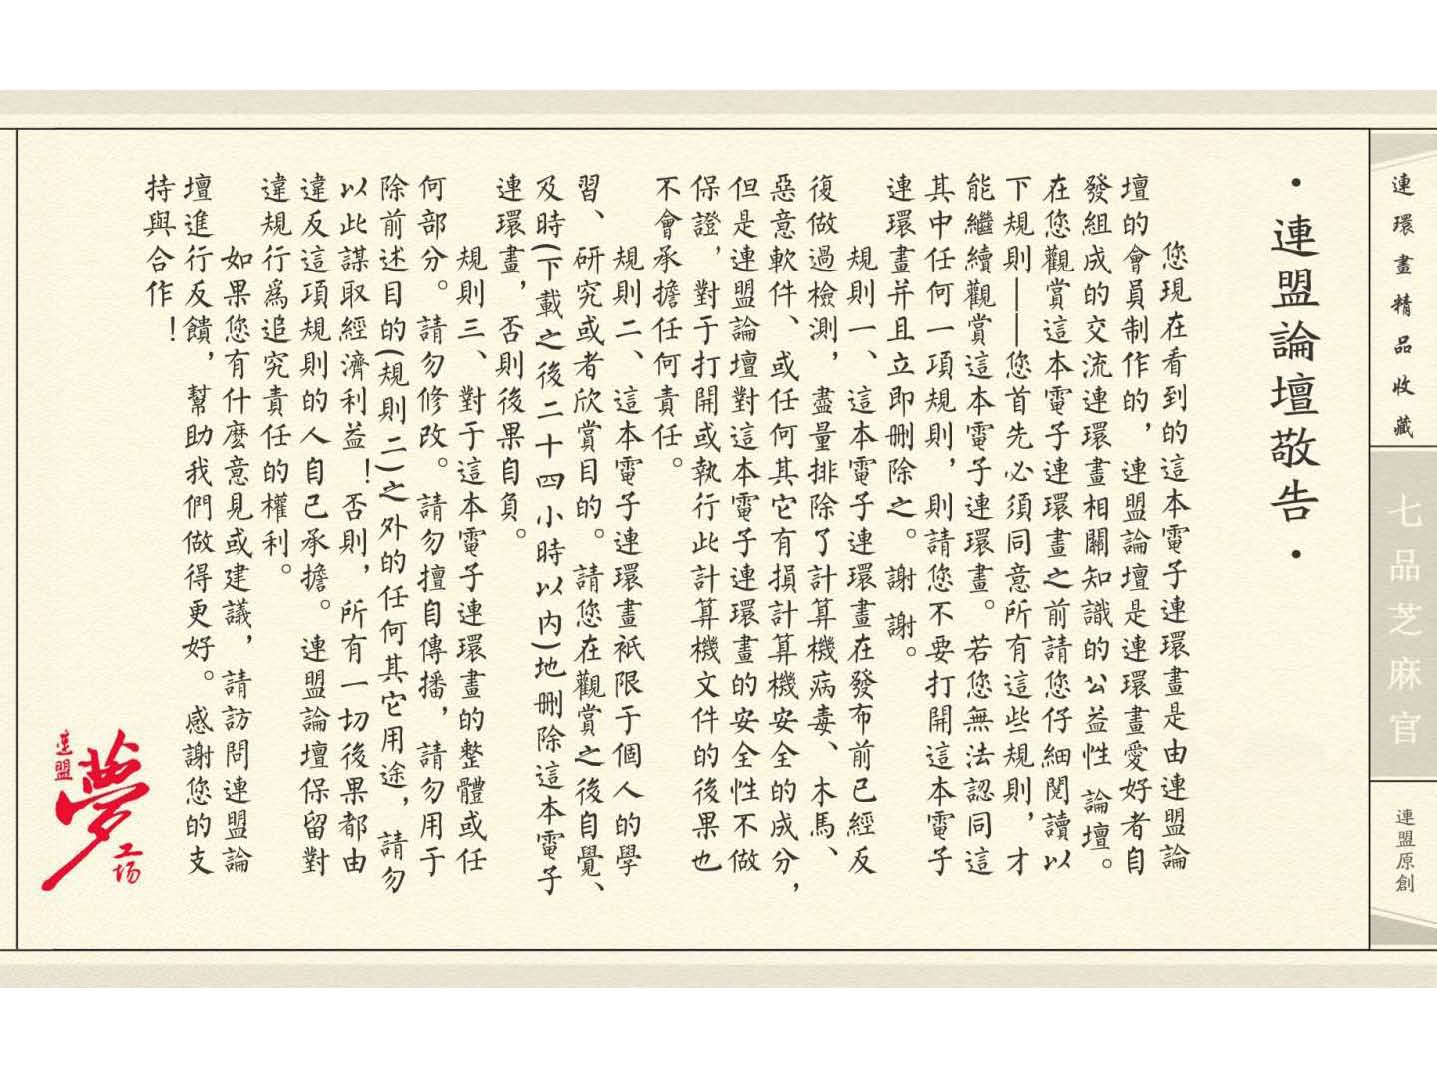 連環畫精品收藏
七品芝麻官
連盟原創
·連盟論壇敬告·
您現在看到的這本電子連環畫是由連盟論
壇的會員制作的，連盟論壇是連環畫愛好者自
發組成的交流連環畫相關知識的公益性論壇。
在您觀賞這本電子連環畫之前請您仔細閱讀以
下規則——您首先必須同意所有這些規則，才
能繼續觀賞這本電子連環畫。若您無法認同這
其中任何一項規則，則請您不要打開這本電子
連環畫并且立即刪除之。謝謝。
規則一、這本電子連環畫在發布前已經反
復做過檢測，盡量排除了計算機病毒、木馬、
惡意軟件、或任何其它有損計算機安全的成分，
但是連盟論壇對這本電子連環畫的安全性不做
保證，對于打開或執行此計算機文件的後果也
不會承擔任何責任。
規則二、這本電子連環畫祇限于個人的學
習、研究或者欣賞目的。請您在觀賞之後自覺、
及時(下載之後二十四小時以内)地刪除這本電子
連環畫，否則後果自負。
規則三、對于這本電子連環畫的整體或任
何部分。請勿修改。請勿擅自傳播，請勿用于
除前述目的(規則二)之外的任何其它用途，請勿
以此謀取經濟利益！否則，所有一切後果都由
違反這項規則的人自己承擔。連盟論壇保留對
違規行爲追究責任的權利。
如果您有什麼意見或建議，請訪問連盟論
壇進行反饋，幫助我們做得更好。感謝您的支
持與合作！
連盟
夢工场